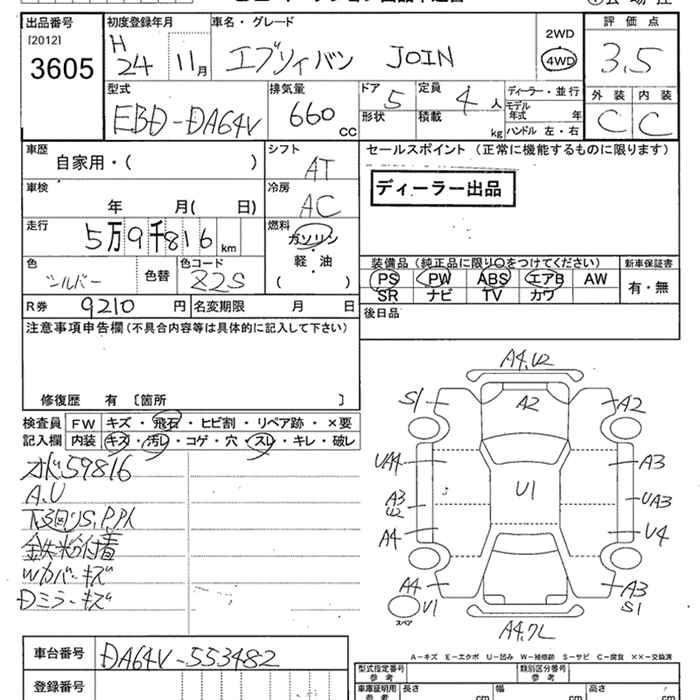 出品番号 [2012] 3605
初度登録年月 H24 11月
車名・グレード エブリィバン JOIN
2WD 4WD
評価点 3.5
外装 C 内装 C
型式 EBD-DA64V
排気量 660 cc
ドア 5
形状
定員 4人
積載 kg
ディーラー・並行
モデル年式 年
ハンドル 左・右
車歴 自家用・( )
シフト AT
セールスポイント (正常に機能するものに限ります)
ディーラー出品
車検 年 月( 日)
冷房 AC
走行 5万9千816 km
燃料 ガソリン・軽・油 ( )
色 シルバー 色替
色コード Z2S
装備品 (純正品に限り○をつけてください)
新車保証書 有・無
PS PW ABS エアB AW
SR ナビ TV カワ
R券 9210円
名変期限 月 日
後日品
注意事項申告欄(不具合内容等は具体的に記入して下さい)
修復歴 有 〔箇所 〕
検査員記入欄
FW キズ・飛石・ヒビ割・リペア跡・×要
内装 キズ・汚レ・コゲ・穴・スレ・キレ・破レ
オド59816
A.U
下回りS,P.P人
鉄粉付着
Wカバーキズ
Dミラーキズ
A4,U2
S1 A2 A2
UA4 A3
A3 U2 U1 UA3
A4 U4
A4 A3
U1 S1
スペア
A4,7L
A-キズ E-エクボ U-凹み W-補修跡 S-サビ C-腐食 ××-交換済
車台番号 DA64V-553482
登録番号
型式指定番号 参考
類別区分番号 参考
車庫証明用 参考 長さ cm 幅 cm 高さ cm